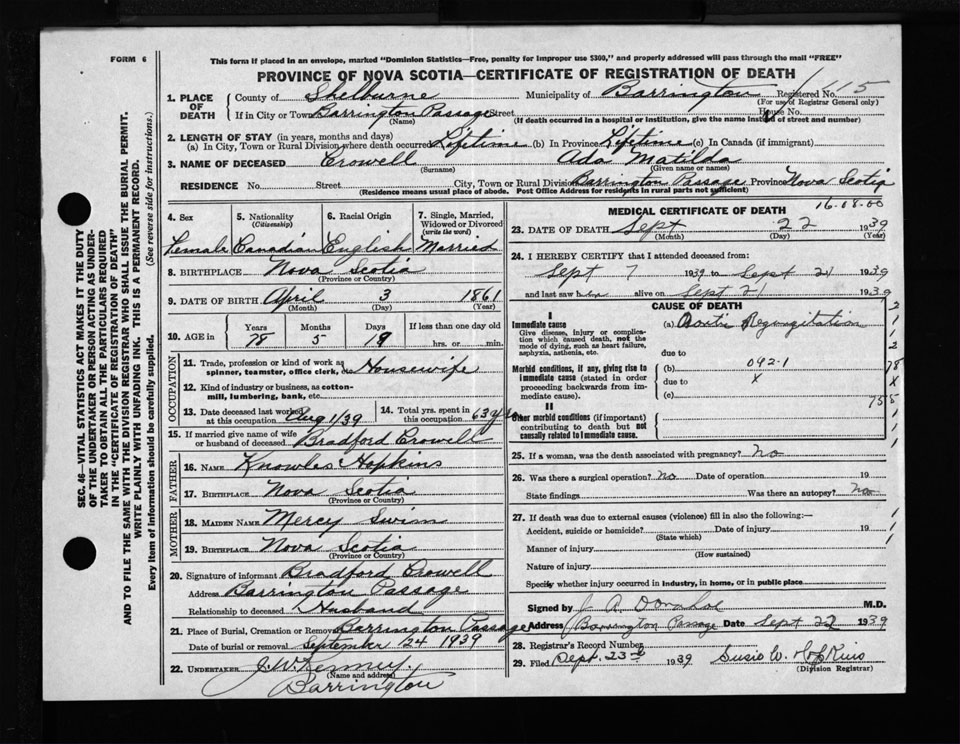 FORM 6
This form if placed in an envelope, marked "Dominion Statistics—Free, penalty for improper use $300," and properly addressed will pass through the mail "FREE"
PROVINCE OF NOVA SCOTIA—CERTIFICATE OF REGISTRATION OF DEATH
1. PLACE OF DEATH County of Shelburne Municipality of Barrington Registered No. 115
(For use of Registrar General only)
If in City or Town Barrington Passage Street House No.
(Name) (If death occurred in a hospital or institution, give the name instead of street and number)
2. LENGTH OF STAY (in years, months and days)
(a) In City, Town or Rural Division where death occurred Lifetime (b) In Province Lifetime (c) In Canada (if immigrant)
3. NAME OF DECEASED Crowell Ada Matilda
(Surname) (Given name or names)
RESIDENCE No. Street City, Town or Rural Division Barrington Passage Province Nova Scotia
(Residence means usual place of abode. Post Office Address for residents in rural parts not sufficient)
4. Sex Female
5. Nationality (Citizenship) Canadian
6. Racial Origin English
7. Single, Married, Widowed or Divorced (write the word) Married
8. BIRTHPLACE Nova Scotia
(Province or Country)
9. DATE OF BIRTH April 3 1861
(Month) (Day) (Year)
10. AGE in Years Months Days If less than one day old
78 5 19 hrs. or min.
OCCUPATION
11. Trade, profession or kind of work as spinner, teamster, office clerk, etc. Housewife
12. Kind of industry or business, as cotton-mill, lumbering, bank, etc.
13. Date deceased last worked at this occupation Aug 1/39
14. Total yrs. spent in this occupation 63
15. If married give name of wife or husband of deceased Bradford Crowell
FATHER
16. NAME Knowles Hopkins
17. BIRTHPLACE Nova Scotia
(Province or Country)
MOTHER
18. MAIDEN NAME Mercy Swim
19. BIRTHPLACE Nova Scotia
(Province or Country)
20. Signature of informant Bradford Crowell
Address Barrington Passage
Relationship to deceased Husband
21. Place of Burial, Cremation or Removal Barrington Passage
Date of burial or removal September 24 1939
22. UNDERTAKER J. W. Kenney,
(Name and address)
Barrington
16-08-00
MEDICAL CERTIFICATE OF DEATH
23. DATE OF DEATH Sept 22 1939
(Month) (Day) (Year)
24. I HEREBY CERTIFY that I attended deceased from:
Sept 7 1939 to Sept 21 1939
and last saw her alive on Sept 21 1939
CAUSE OF DEATH
I
Immediate cause
Give disease, injury or complication which caused death, not the mode of dying, such as heart failure, asphyxia, asthenia, etc.
(a) Aortic Regurgitation
due to
Morbid conditions, if any, giving rise to immediate cause (stated in order proceeding backwards from immediate cause).
(b) 092-1
due to X
(c)
II
Other morbid conditions (if important) contributing to death but not causally related to immediate cause.
25. If a woman, was the death associated with pregnancy? no
26. Was there a surgical operation? No Date of operation 19
State findings Was there an autopsy? No
27. If death was due to external causes (violence) fill in also the following:—
Accident, suicide or homicide? Date of injury 19
(State which)
Manner of injury
(How sustained)
Nature of injury
Specify whether injury occurred in industry, in home, or in public place
Signed by J A M.D.
Address Barrington Passage Date Sept 22 1939
28. Registrar's Record Number
29. Filed Sept. 23rd 1939 Susie W. Hopkins
(Division Registrar)
SEC. 46—VITAL STATISTICS ACT MAKES IT THE DUTY
OF THE UNDERTAKER OR PERSON ACTING AS UNDER-
TAKER TO OBTAIN ALL THE PARTICULARS REQUIRED
IN THE "CERTIFICATE OF REGISTRATION OF DEATH"
AND TO FILE THE SAME WITH THE DIVISION REGISTRAR WHO SHALL ISSUE THE BURIAL PERMIT.
WRITE PLAINLY WITH UNFADING INK. THIS IS A PERMANENT RECORD.
Every item of information should be carefully supplied. (See reverse side for instructions.)